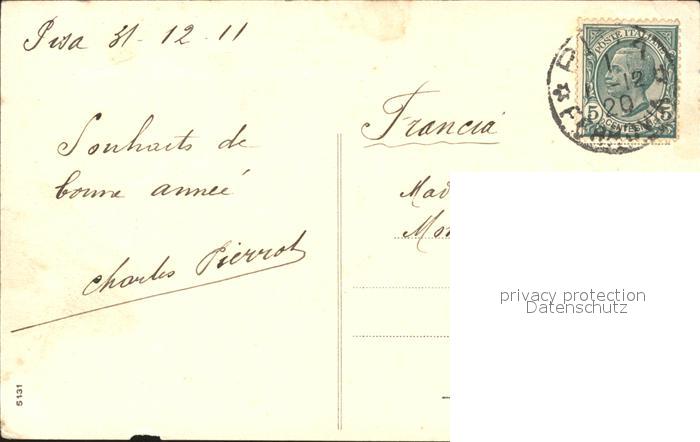 Pisa 31-12-11
Souhaits de
bonne anneé
Charles Pierrot
5131
POSTE ITALIANE
5 5
CENTESIMI
PISA
1-1
12
20
FERROVIA
Francia
Mad
privacy protection
Datenschutz